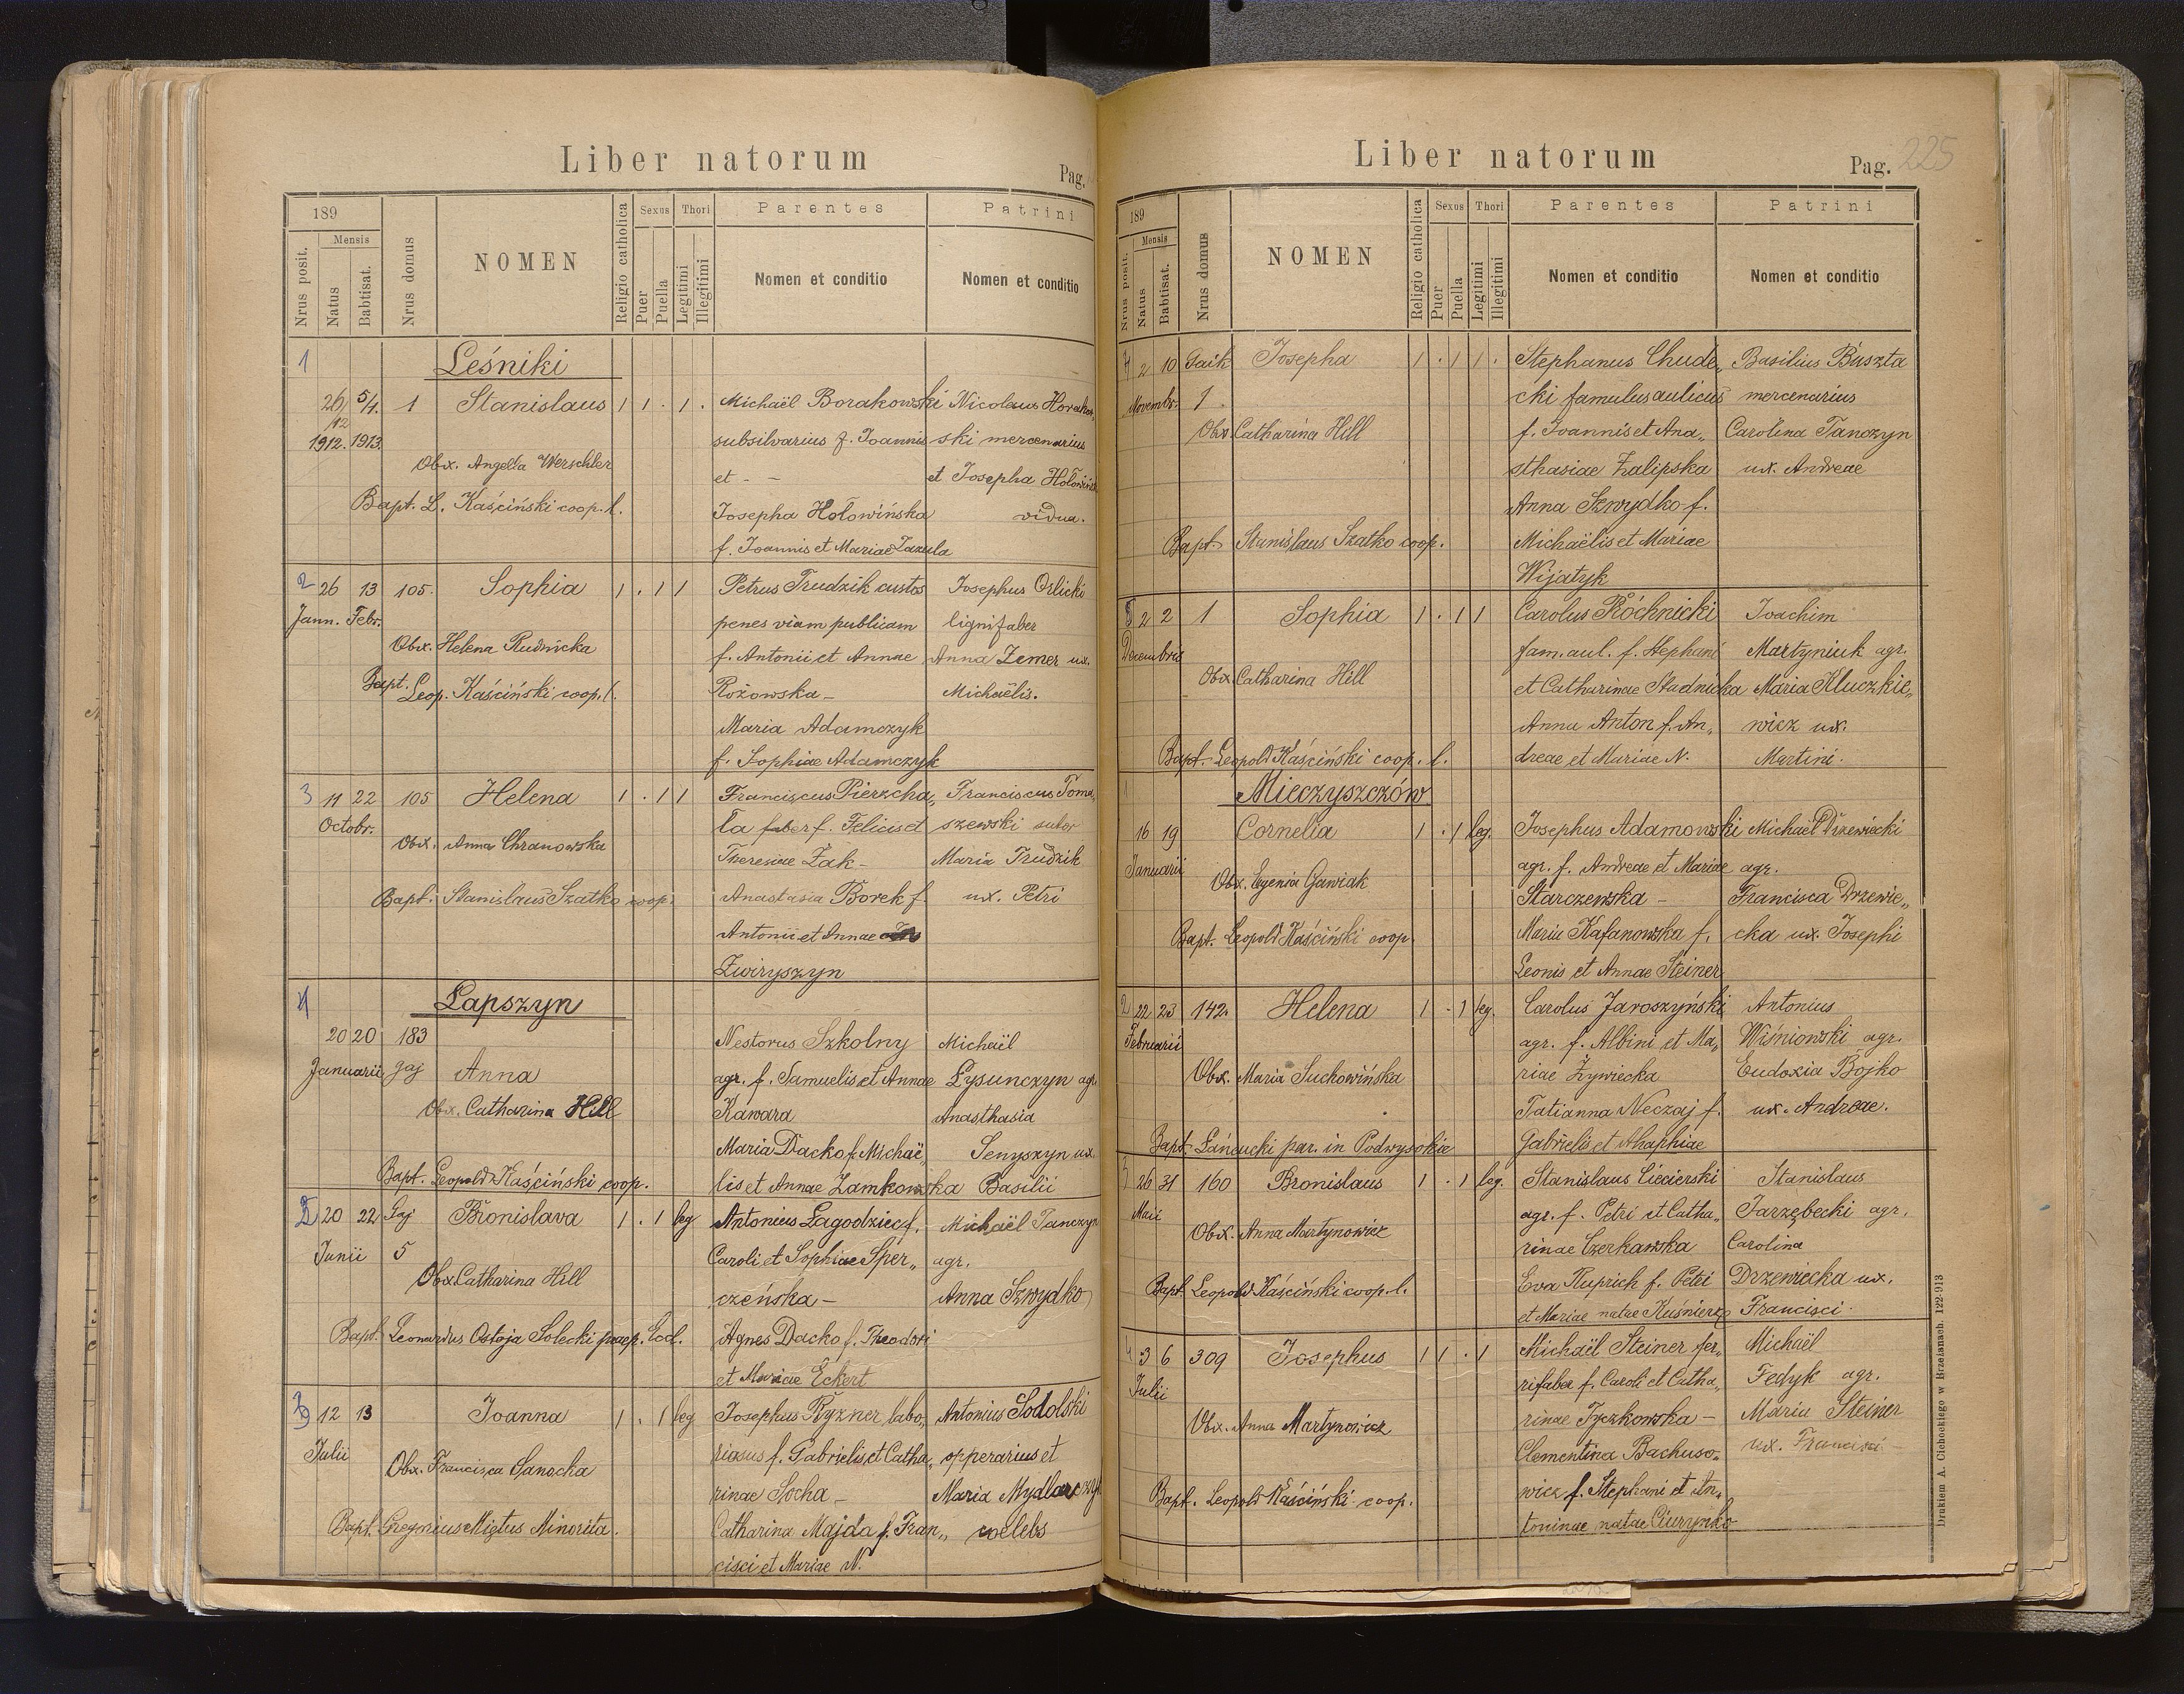 Liber natorum
Pag.
189
Mensis
Nrus posit.
Natus
Babtisat.
Nrus domus
NOMEN
Religio catholica
Sexus
Puer
Puella
Thori
Legitimi
Illegitimi
Parentes
Nomen et conditio
Patrini
Nomen et conditio
1 Leśniki
26/12 5/1. 1 Stanislaus 1 1 . 1 . Michaël Borakowski Nicolaus
1912. 1913. subsilvarius f. Joannis ski mercenarius
Obx. Angella Werschler et - - et Josepha
Bapt. L. Kaściński coop. l. Josepha Hołowińska vidua.
f. Joannis et Mariae Zazula
2 26 13 105. Sophia 1 . 1 1 Petrus Trudzik custos Josephus Orlicki
Jann. Febr. penes viam publicam lignifaber
Obx. Helena Rudnicka f. Antonii et Annae Anna Zemer ux.
Bapt. Leop. Kaściński coop. l. Rożowska - Michaëlis.
Maria Adamczyk
f. Sophiae Adamczyk
3 11 22 105 Helena 1 . 1 1 Franciscus Pierzcha„ Franciscus Toma„
Octobr. ła faber f. Felicis et szewski sutor
Obx. Anna Chranowska Theresiae Żak - Maria Trudzik
Bapt. Stanislaus Szatko coop. Anastasia Borek f. ux. Petri
Antonii et Annae
Zwiryszyn
4 Łapszyn
20 20 183 Nestorus Szkolny Michaël
Januarii Gaj Anna agr. f. Samuelis et Annae Łysunczyn agr.
Obx. Catharina Hill Kawara Anasthasia
Maria Dacko f. Michaë„ Senyszyn ux.
Bapt. Leopold Kaściński coop. lis et Annae Zamkowska Basilii
2 20 22 Gaj Bronislava 1 . 1 leg Antonius Łagodziec f. Michaël Tanczyn
Junii 5 Caroli et Sophiae Sper„ agr.
Obx. Catharina Hill czeńska - Anna Szwydko
Bapt. Leonardus Ostoja Solecki praep. Eccl. Agnes Dacko f. Theodori
et Mariae Eckert
3 12 13 Joanna 1 . 1 leg Josephus Ryzner labo„ Antonius Sodolski
Julii riosus f. Gabrielis et Catha„ opperarius et
Obx. Francisca Sanocka rinae Socha - Maria Mydlarczyk
Bapt. Gregorius Migtus Minorita. Catharina Majda f. Fran„ coelebs
cisci et Mariae N.
Liber natorum
Pag. 225
189
Mensis
Nrus posit.
Natus
Babtisat.
Nrus domus
NOMEN
Religio catholica
Sexus
Puer
Puella
Thori
Legitimi
Illegitimi
Parentes
Nomen et conditio
Patrini
Nomen et conditio
4 2 10 Gaik Josepha 1 . 1 1 . Stephanus Chude„ Basilius Buszta
Novembr. 1 cki famulus aulicus mercenarius
Obx. Catharina Hill f. Joannis et Ana„ Carolina Tanczyn
sthasiae Zalipska ux. Andreae
Anna Szwydko f.
Bapt. Stanislaus Szatko coop. Michaëlis et Mariae
Wijatyk
5 2 2 1 Sophia 1 . 1 1 Carolus Płóchnicki Joachim
Decembris fam. aul. f. Stephani Martyniuk agr.
Obx. Catharina Hill et Catharinae Stadnicka Maria Kluczkie„
Anna Anton f. An„ wicz ux.
Bapt. Leopold Kaściński coop. l. dreae et Mariae N. Martini.
1 Mieczyszczów
16 19 Cornelia 1 . 1 leg. Josephus Adamowski Michaël Drzewiecki
Januarii agr. f. Andreae et Mariae agr.
Obx. Eugenia Gawiak Starczewska - Francisca Drzewie„
Bapt. Leopold Kaściński coop. Maria Kafanowska f. cka ux. Josephi
Leonis et Annae Steiner
2 22 23 142. Helena 1 . 1 leg. Carolus Jaroszyński Antonius
Februarii agr. f. Albini et Ma„ Wiśniowski agr.
Obx. Maria Suchowińska riae Żywiecka Eudoxia Bojko
Tatianna Neczaj f. ux. Andreae.
Bapt. Łańcucki par. in Podwysokie Gabrielis et Ahaphiae
3 26 31 160 Bronislaus 1 . 1 leg. Stanislaus Ciecierski Stanislaus
Maii agr. f. Petri et Catha„ Jarzębecki agr.
Obx. Anna Martynowicz rinae Czerkawska Carolina
Bapt. Leopold Kaściński coop. l. Eva Ruprich f. Petri Drzewiecka ux.
et Mariae natae Kuśnierz Francisci.
4 3 6 309 Josephus 1 1 . 1 Michaël Steiner fer„ Michaël
Julii rifaber f. Caroli et Catha„ Fedyk agr.
Obx. Anna Martynowicz rinae Tyczkowska - Maria Steiner
Clementina Bachuso„ ux. Francisci -
Bapt. Leopold Kaściński coop. wicz f. Stephani et An„
toninae natae Ciurynko
Drukiem A. Cichockiego w Brzeżanach. 122-913